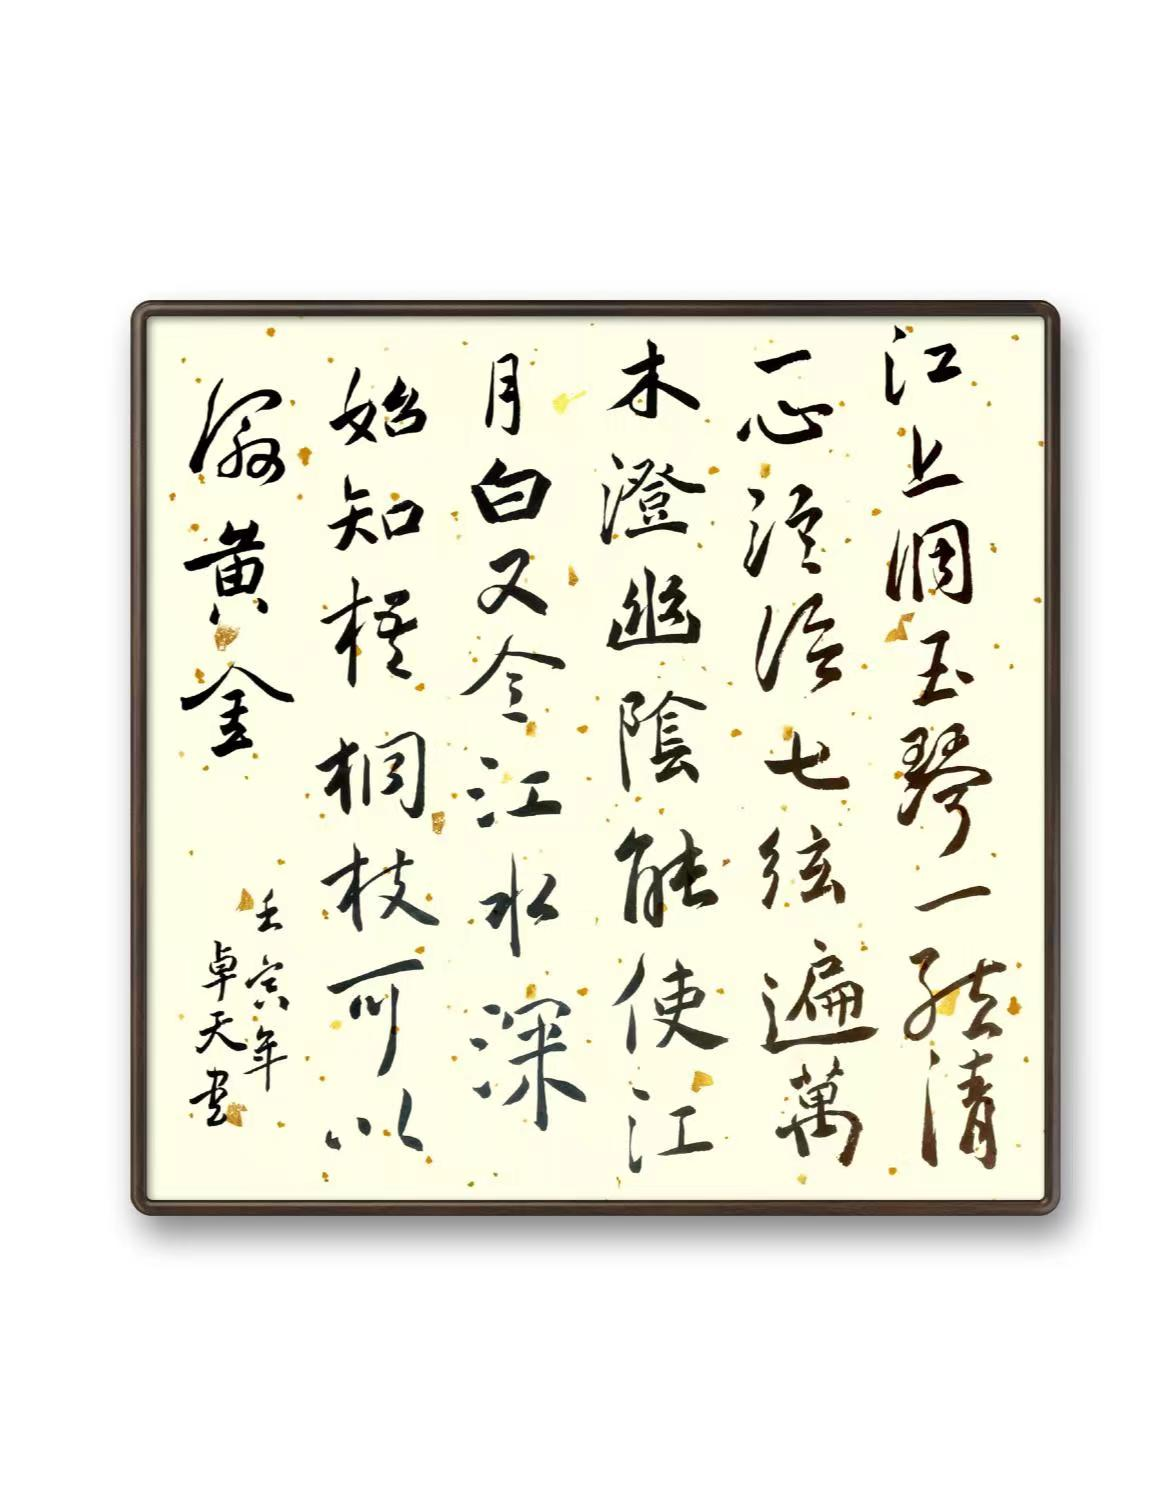 江上調玉琴一絃清
一心泠泠七絃遍萬
木澄幽陰能使江
月白又令江水深
始知梧桐枝可以
徽黄金
壬寅年
卓天書